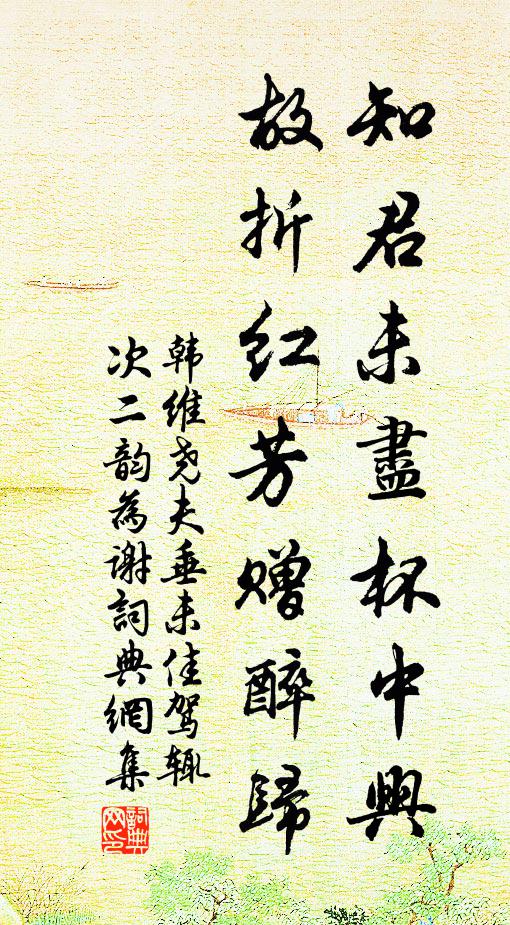 知君未盡杯中興
故折红芳赠醉歸
韩維尧夫垂未佳驾辄
次二韵為谢詞典網集
詞典
网印